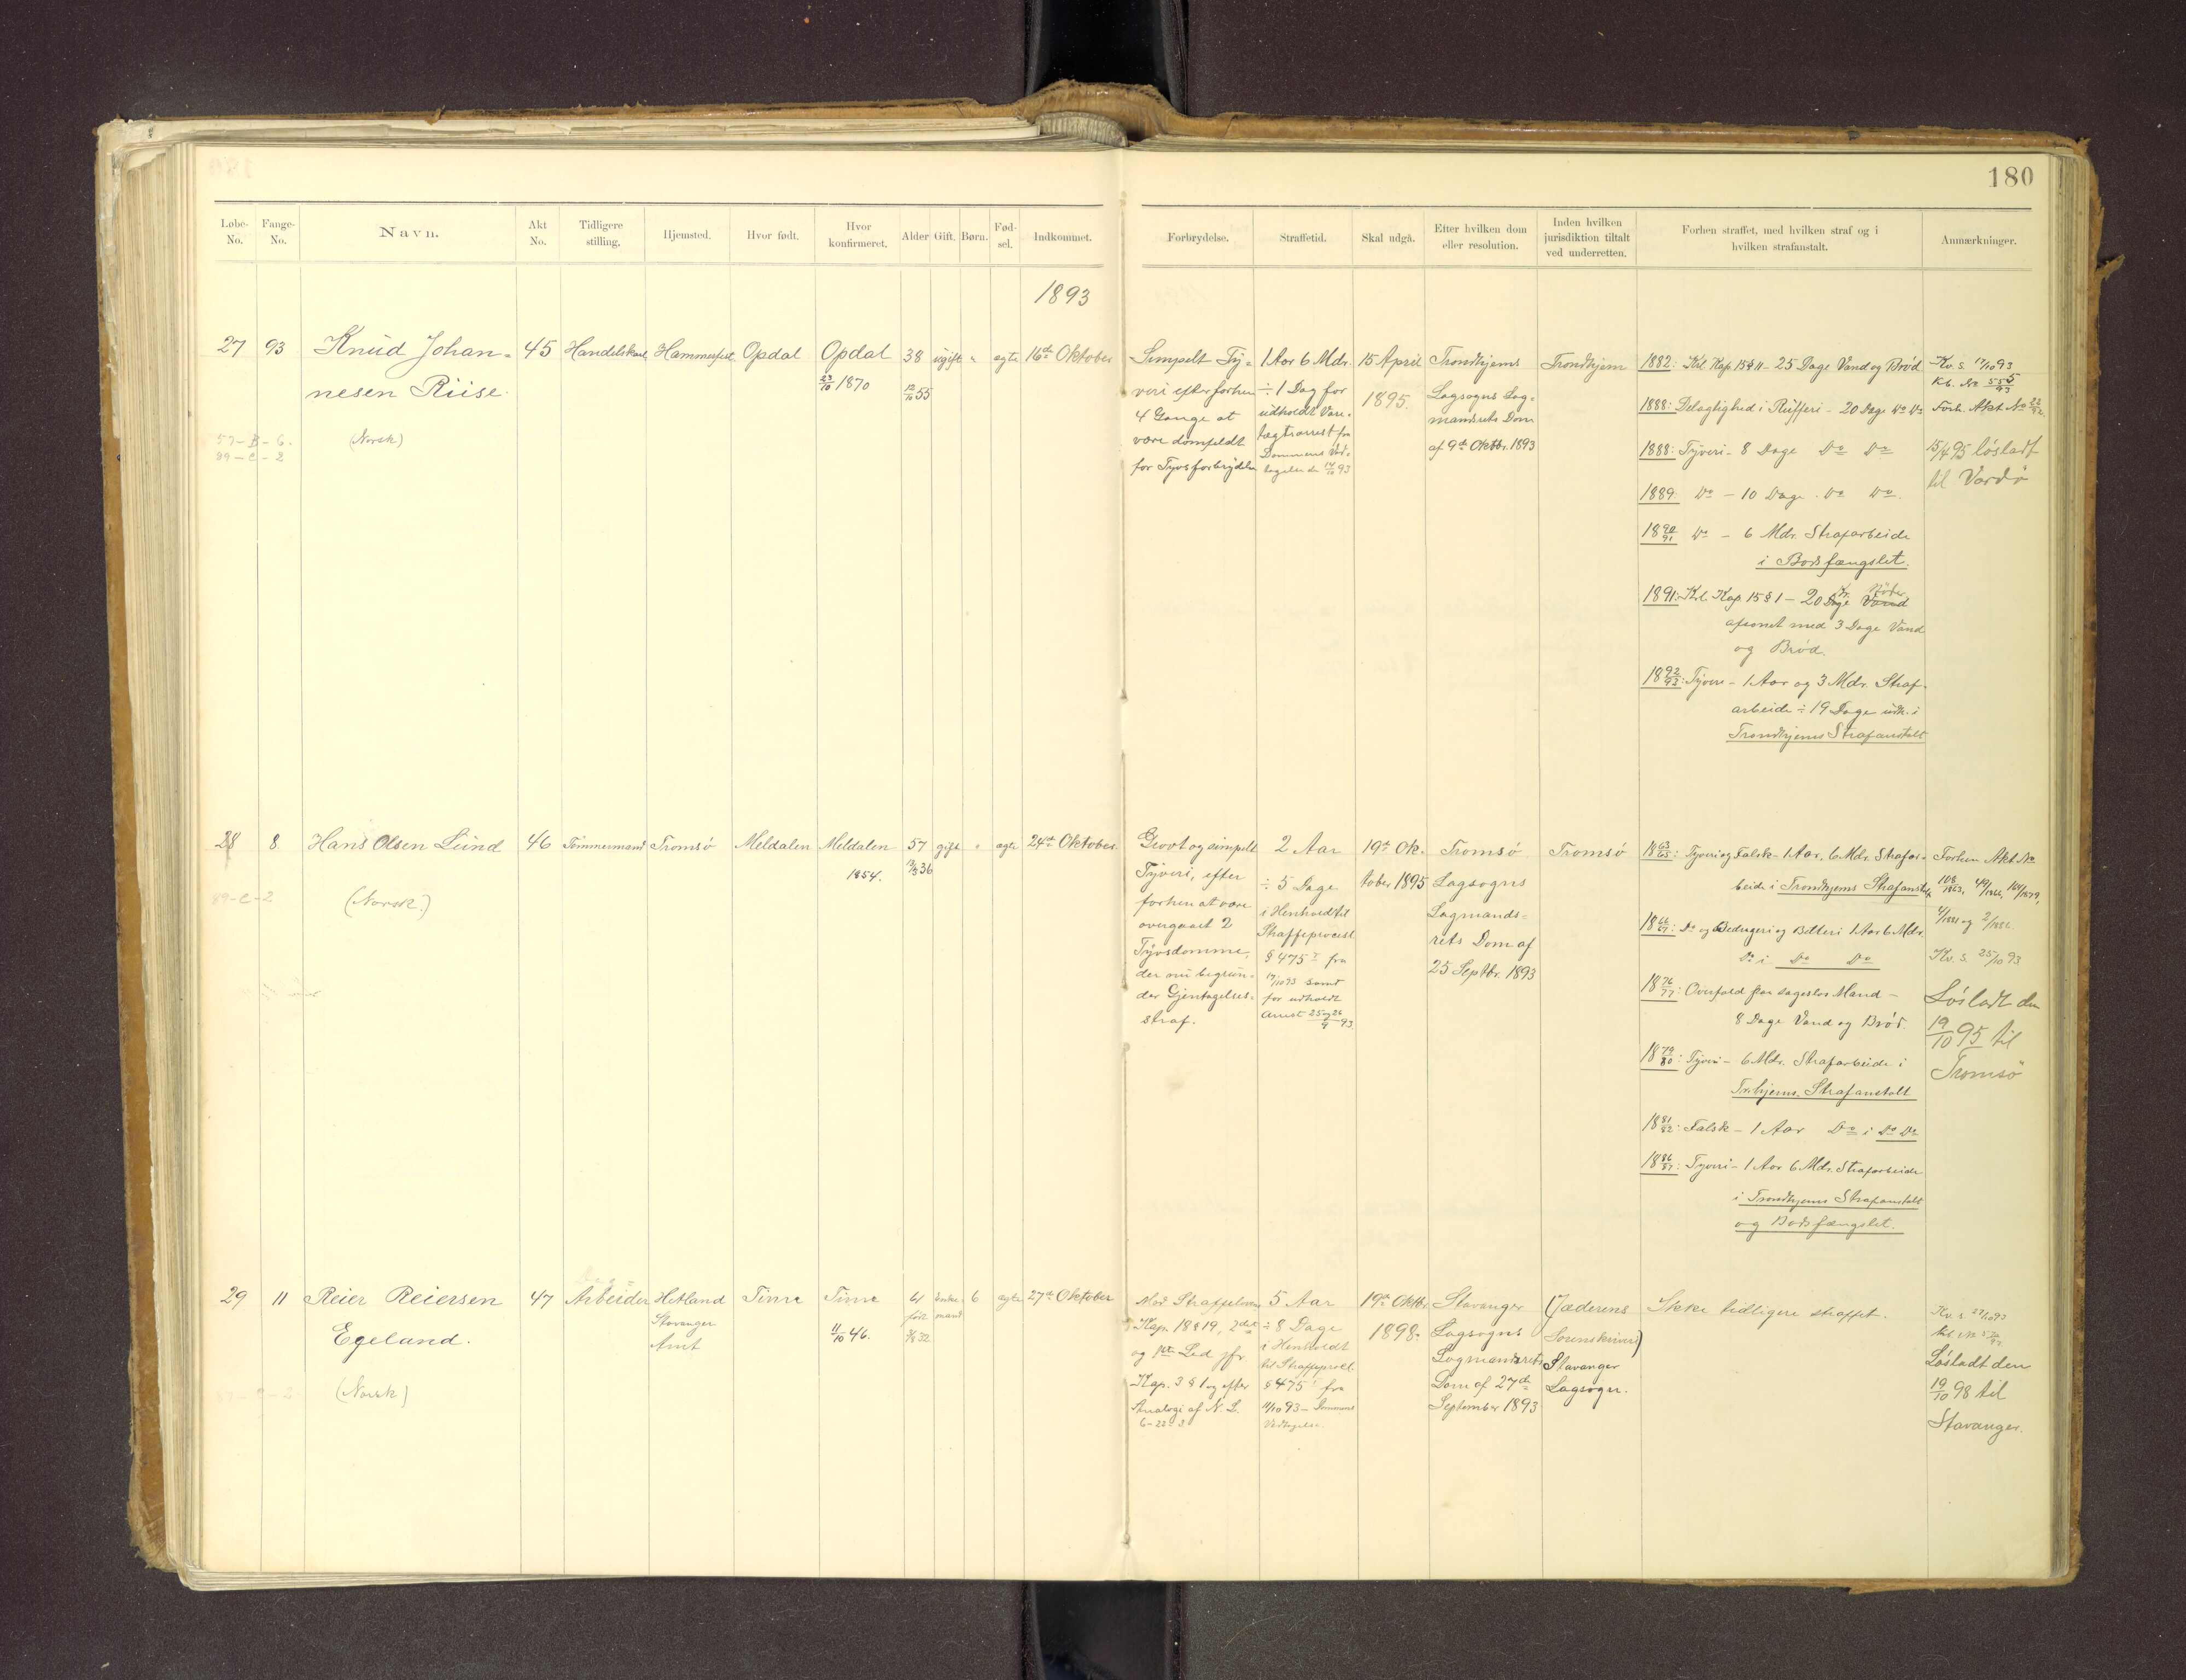 180
Løbe-No. Fange-No. Navn. Akt No. Tidligere stilling. Hjemsted. Hvor født. Hvor konfirmeret. Alder Gift. Børn. Fød-sel. Indkommet. Forbrydelse. Straffetid. Skal udgå. Efter hvilken dom eller resolution. Inden hvilken jurisdiktion tiltalt ved underretten. Forhen straffet, med hvilken straf og i hvilken strafanstalt. Anmærkninger.
1893
27 93 Knud Johan-
nesen Riise.
57-B-6.
89-C-2
(Norsk)
45 Handelskarl Hammerfest Opdal Opdal
23/10 1870
38
12/10 55
ugift " ægte 16de Oktober
Simpelt Ty-
veri efter forhen
4 Gange at
være domfeldt
for Tyvsforbrydelse
1 Aar 6 Mdr.
÷ 1 Dag for
udholdt Vare-
tægtsarrest fra
Dommens Ved-
tagelse den 14/10 93
15 April
1895.
Trondhjems
Lagsogns Lag-
mandsrets Dom
af 9de Oktbr. 1893
Trondhjem
1882: Krl. Kap 15 § 11 - 25 Dage Vand og Brød
1888: Delagtighed i Rufferi - 20 Dage Do Do
1888: Tyveri - 8 Dage Do Do
1889: Do - 10 Dage Do Do.
1890/91 Do - 6 Mdr. Strafarbeide
i Bodsfængslet.
1891: Krl. Kap 15 § 1 - 20 Kr. Bøder
Dage Vand
afsonet med 3 Dage Vand
og Brød.
1892/93: Tyveri - 1 Aar og 3 Mdr. Straf-
arbeide ÷ 19 Dage udh. i
Trondhjems Strafanstalt
Kv. S. 17/10 93
Kb. No 555/93
Forh. Akt No 22/92
15/4 95 løsladt
til Vardø
28 8 Hans Olsen Lund
89-C-2
(Norsk.)
46 Tømmermand Tromsø Meldalen Meldalen
1854.
57
36
gift " ægte 24de Oktober
Grovt og simpelt
Tyveri, efter
forhen at være
overgaaet 2
Tyvsdomme,
der nu begrun-
der Gjentagelses-
straf.
2 Aar
÷ 5 Dage
i Henhold til
Straffeprocesl.
§ 475 fra
17/10 93 samt
for udholdt
Arrest 25 og 26/9 93.
19de Ok-
tober 1895
Tromsø
Lagsogns
Lagmands-
rets Dom af
25 Septbr. 1893
Tromsø
1863/65: Tyveri og Falsk - 1 Aar, 6 Mdr. Strafar-
beide i Trondhjems Strafanstalt
1866/67: Do og Bedrageri og Betleri 1 Aar 6 Mdr.
Do i Do Do
1876/77: Overfald paa sagesløs Mand -
8 Dage Vand og Brød.
1879/80: Tyveri - 6 Mdr. Strafarbeide i
Trhjems. Strafanstalt
1881/82: Falsk - 1 Aar Do i Do Do
1886/87: Tyveri - 1 Aar 6 Mdr. Strafarbeide
i Trondhjems Strafanstalt
og Bodsfængslet.
Forhen Akt No
108/1863, 49/1866, 1879,
4/1881 og 2/1886
Kv. S. 25/10 93
Løsladt den
19/10 95 til
Tromsø
29 11 Reier Reiersen
Egeland.
(Norsk)
47 Arbeider Hetland
Stavanger
Amt
Time Time
11/10 46.
61
født
32
Enke-
mand
6 ægte 27de Oktober
Mod Straffeloven
Kap. 18 § 19, 2det
og 1ste Led jfr.
Kap. 3 § 1 og efter
Analogi af N. L.
6-22-2
5 Aar
÷ 8 Dage
i Henholdt
til Straffeprocl.
§ 475 fra
11/10 93 - Dommens
Vedtagelse.
19de Oktbr.
1898.
Stavanger
Lagsogns
Lagmandsrets
Dom af 27de
September 1893
(Jæderens
Sorenskriveri)
Stavanger
Lagsogn.
Ikke tidligere straffet.
Kv. S. 27/10 93
Løsladt den
19/10 98 til
Stavanger.